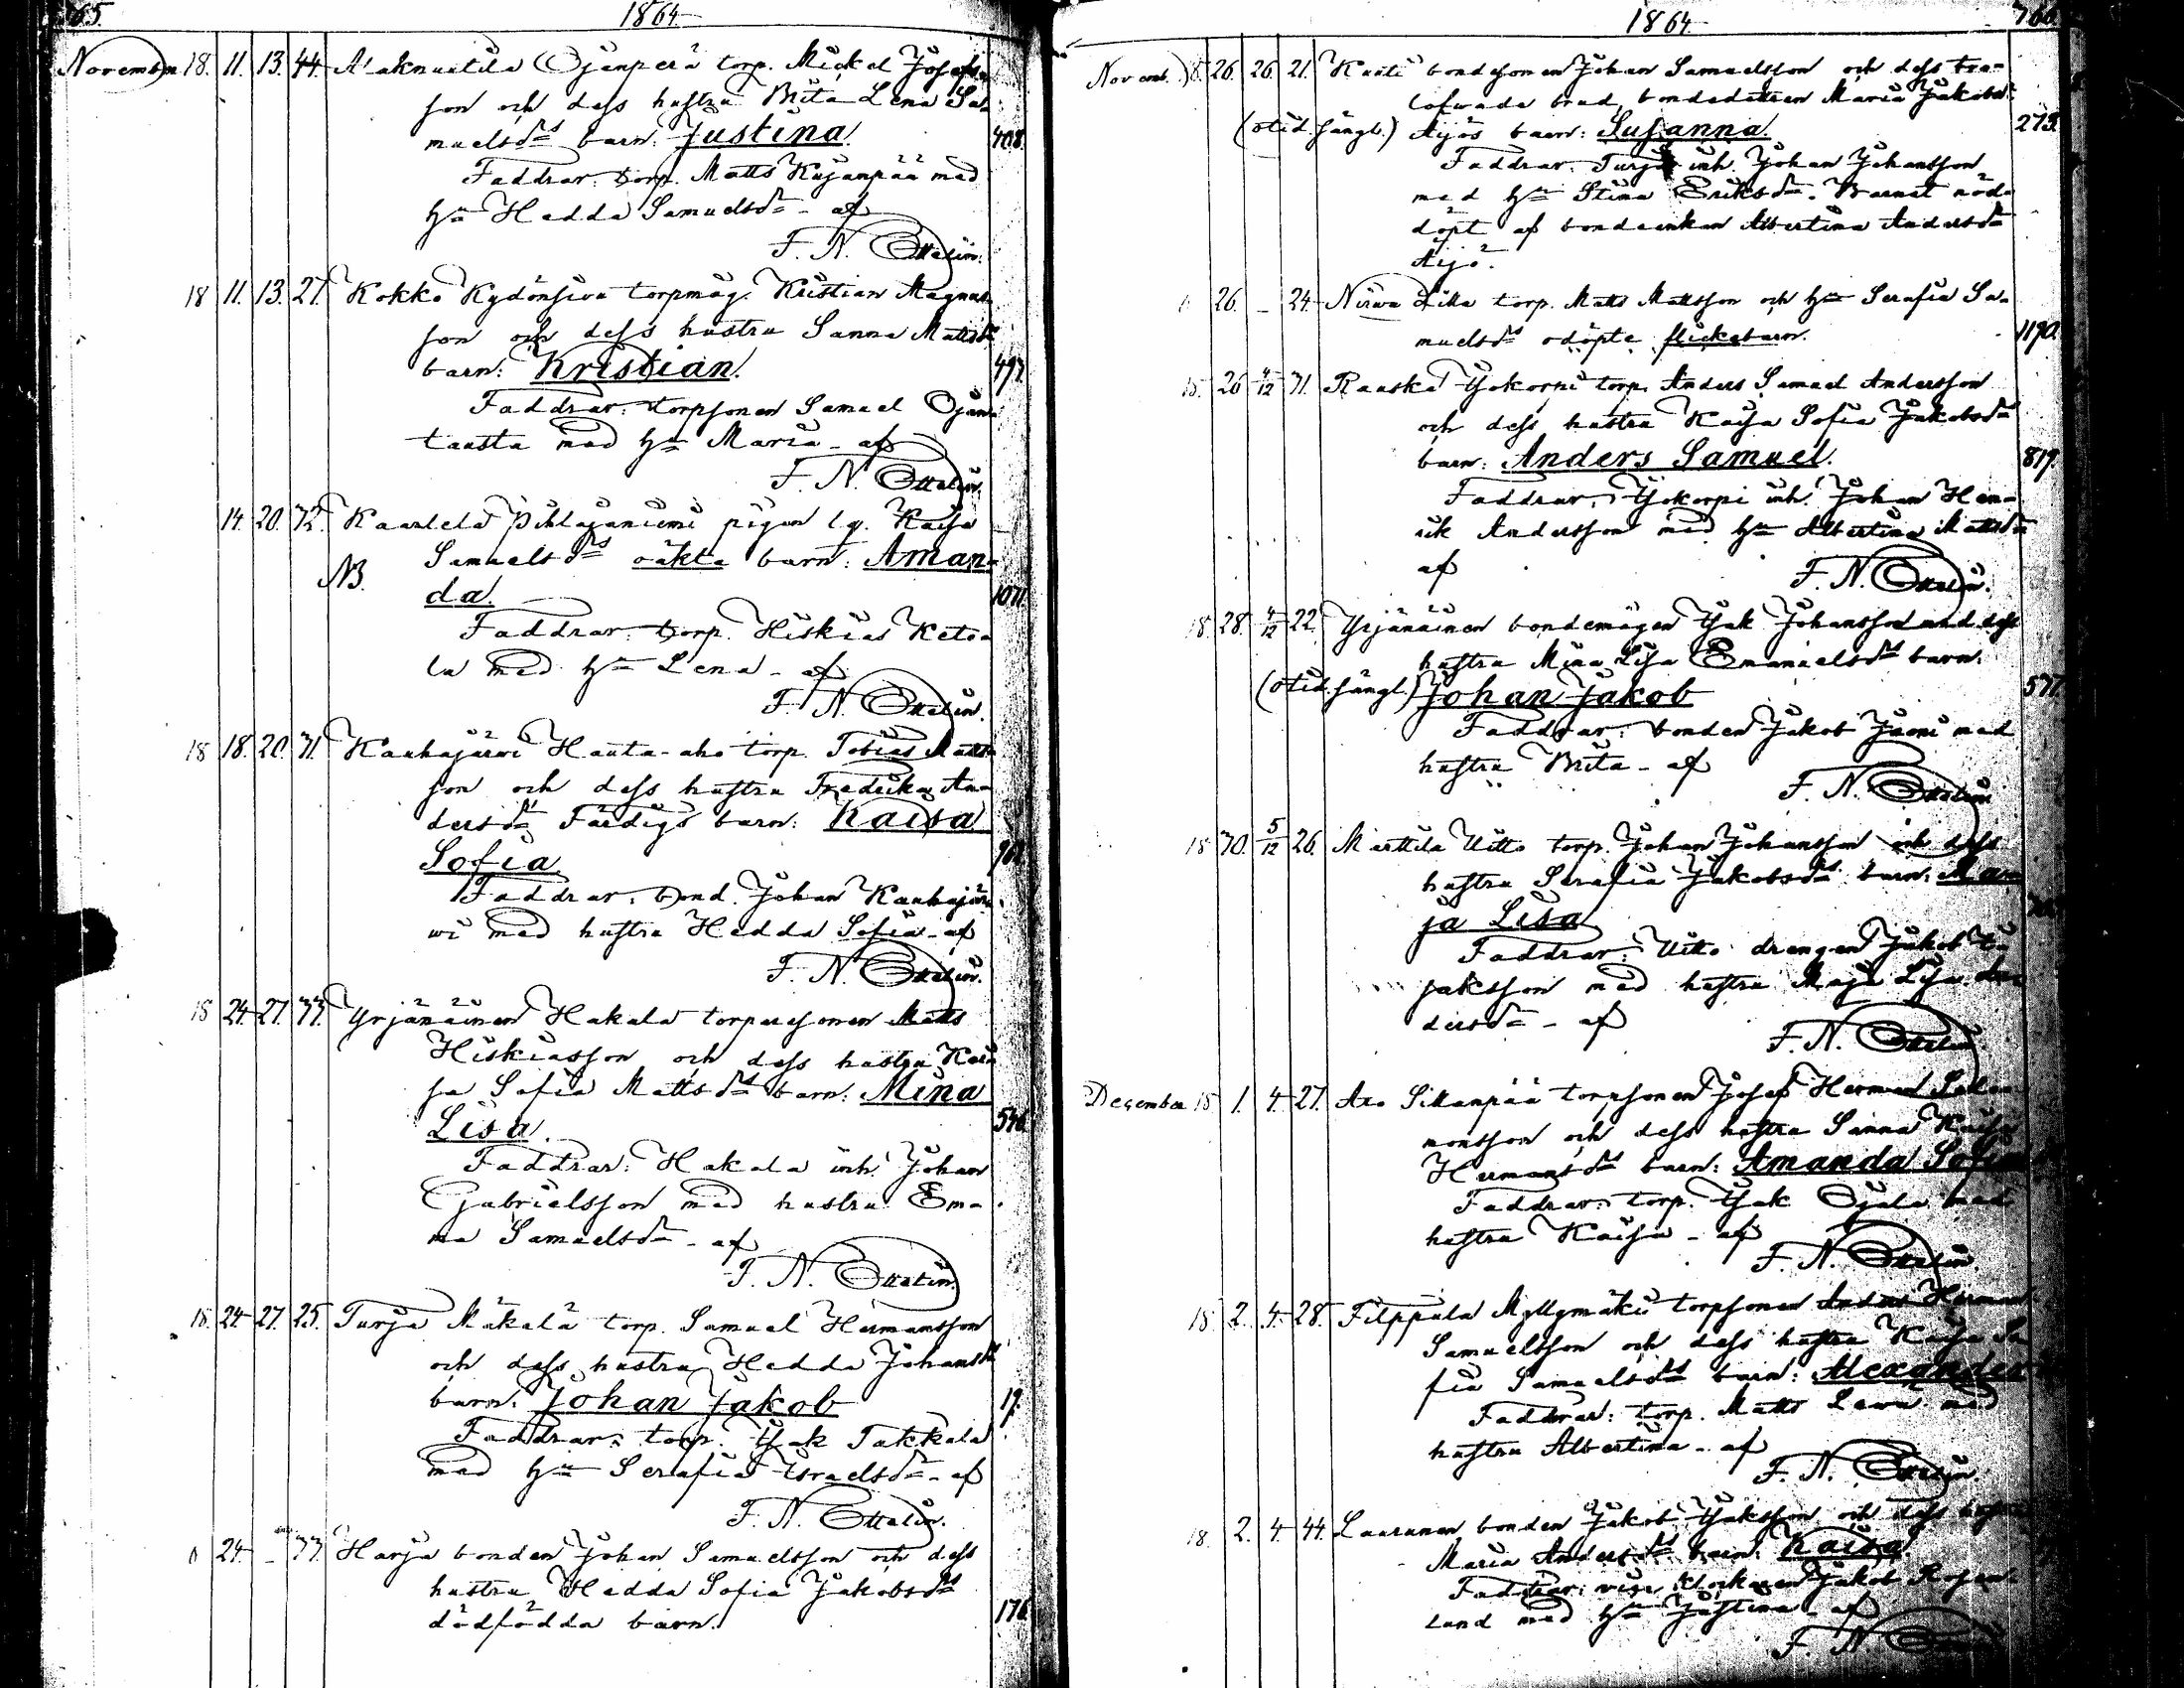 765.
1864.
November 18. 11. 13. 44. Alaknuutila Ojanperä torp. Mickel Josefs-
son och dess hustru Brita Lena Sa-
muelsdrs barn: Justina. 408.
Faddrar: torp. Matts Kujanpää med
hu Hedda Samuelsdr - af
F. N. Ottelin.
18 11. 13. 27. Kokko Kydönsiva torpmåg. Kristian Magnus-
son och dess hustru Sanna Mattsdrs
barn: Kristian. 497.
Faddrar: torpsonen Samuel Ojan-
tausta med hu Maria - af
F. N. Ottelin.
14. 20. 32. Kaarlela Pihlajaniemi pigan lg. Kaisa
NB. Samuelsdrs oäkta barn: Aman-
da. 1071.
Faddrar: torp. Hiskias Keto-
la med hu Lena - af
F. N. Ottelin.
18 18. 20. 31. Kauhajärwi Hauta-aho torp. Tobias Matts-
son och dess hustru Fredrika An-
dersdr Färdigs barn: Kaisa
Sofia.
Faddrar: bond. Johan Kauhajär-
wi med hustru Hedda Sofia - af
F. N. Ottelin.
18 24. 27. 33. Yrjänäinen Hakala torparesonen Matts
Hiskiasson och dess hustru Kai-
sa Sofia Mattsdrs barn: Mina
Lisa. 546.
Faddrar: Hakala inh. Johan
Gabrielsson med hustru Em-
ma Samuelsdr - af
F. N. Ottelin.
18. 24. 27. 25. Turja Mäkelä torp. Samuel Hermansson
och dess hustru Hedda Johansdrs
barn: Johan Jakob 19.
Faddrar: torp. Isak Takkala
med hu Serafia Israelsdr - af
F. N. Ottelin.
0 24. - 33. Harju bonden Johan Samuelsson och dess
hustru Hedda Sofia Jakobsdrs
dödfödda barn. 176.
1864. 766.
Novemb. 18. 26. 26. 21. Knuti bondesonen Johan Samuelsson och dess tro-
lofwade brud, bondedottren Maria Jakobsdr
(otid. sängl.) Äijös barn: Susanna. 273.
Faddrar: Turja inh. Johan Johansson
med hu Stina Eriksdr. Barnet nöd-
döpt af bondeenkan Albertina Andersdr
Äijö.
0 26. - 24. Nirwa Lilla torp. Matts Mattsson och hu Serafia Sa-
muelsdrs odöpte flickebarn. 1190.
18. 26 4/12 31. Raaska Ykorpi torp. Anders Samuel Andersson
och dess hustru Kaisa Sofia Jakobsdrs
barn: Anders Samuel. 819.
Faddrar: Ykorpi inh. Johan Hen-
rik Andersson med hu Albertina Mattsdr
af
F. N. Ottelin.
18 28. 4/12 22. Yrjänäinen bondemågen Isak Johansson och dess
hustru Mina Lisa Emanuelsdrs barn:
(otid. sängl.) Johan Jakob 577.
Faddrar: bonden Jakob Juoni med
hustru Brita - af
F. N. Ottelin.
18 30. 5/12 26. Marttila Uitto torp. Johan Johansson och dess
hustru Serafia Jakobsdrs barn: Ma-
ja Lisa
Faddrar: Uitto drängen Jakob Isa-
jaksson med hustru Maja Lisa An-
dersdr - af
F. N. Ottelin.
December 18 1. 4. 27. Aro Sillanpää torpsonen Josef Herman Salo-
monsson och dess hustru Sanna Kaisa
Hermansdrs barn: Amanda Sofia
Faddrar: torp. Isak Ojala med
hustru Kaisa - af
F. N. Ottelin.
18. 2. 4. 28. Filppula Myllymäki torpsonen Anders Herman
Samuelsson och dess hustru Kaisa So-
fia Samuelsdrs barn: Alexander
Faddrar: torp. Matts Lawa med
hustru Albertina - af
F. N. Ottelin.
18. 2. 4. 44. Laurunen bonden Jakob Isaksson och dess hustru
Maria Andersdrs barn: Kaisa.
Faddrar: vice klockaren Jakob Rosen-
lund med hu Justina - af
F. N. Ottelin.